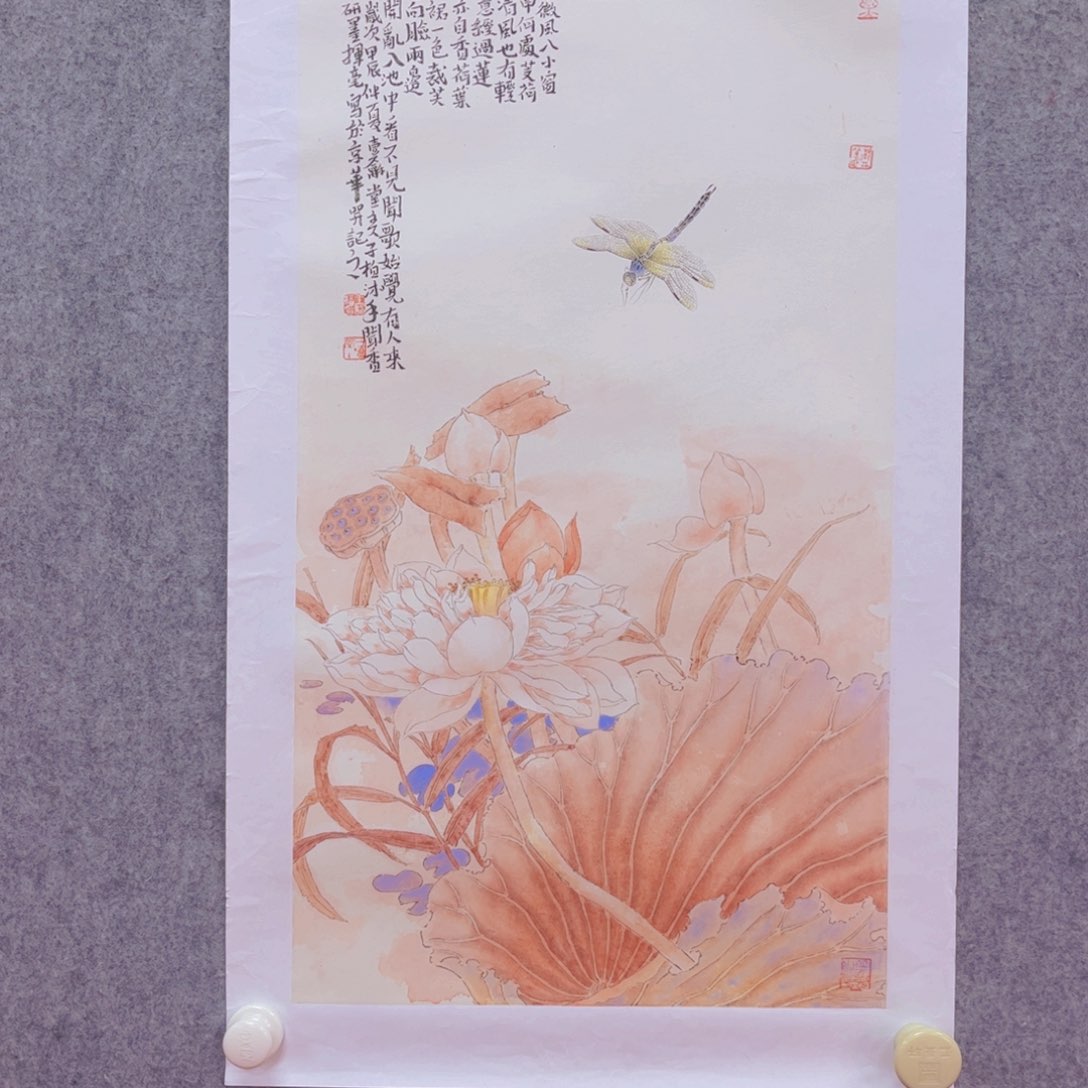 微風入小窗
何處芰荷
風也有輕
意經過蓮
亦自香荷葉
裙一色裁芙
向臉兩邊
開亂入池中看不見聞歌始覺有人來
歲次甲辰仲夏堂主文子植沐手聞香
研墨揮毫寫於京華並記之